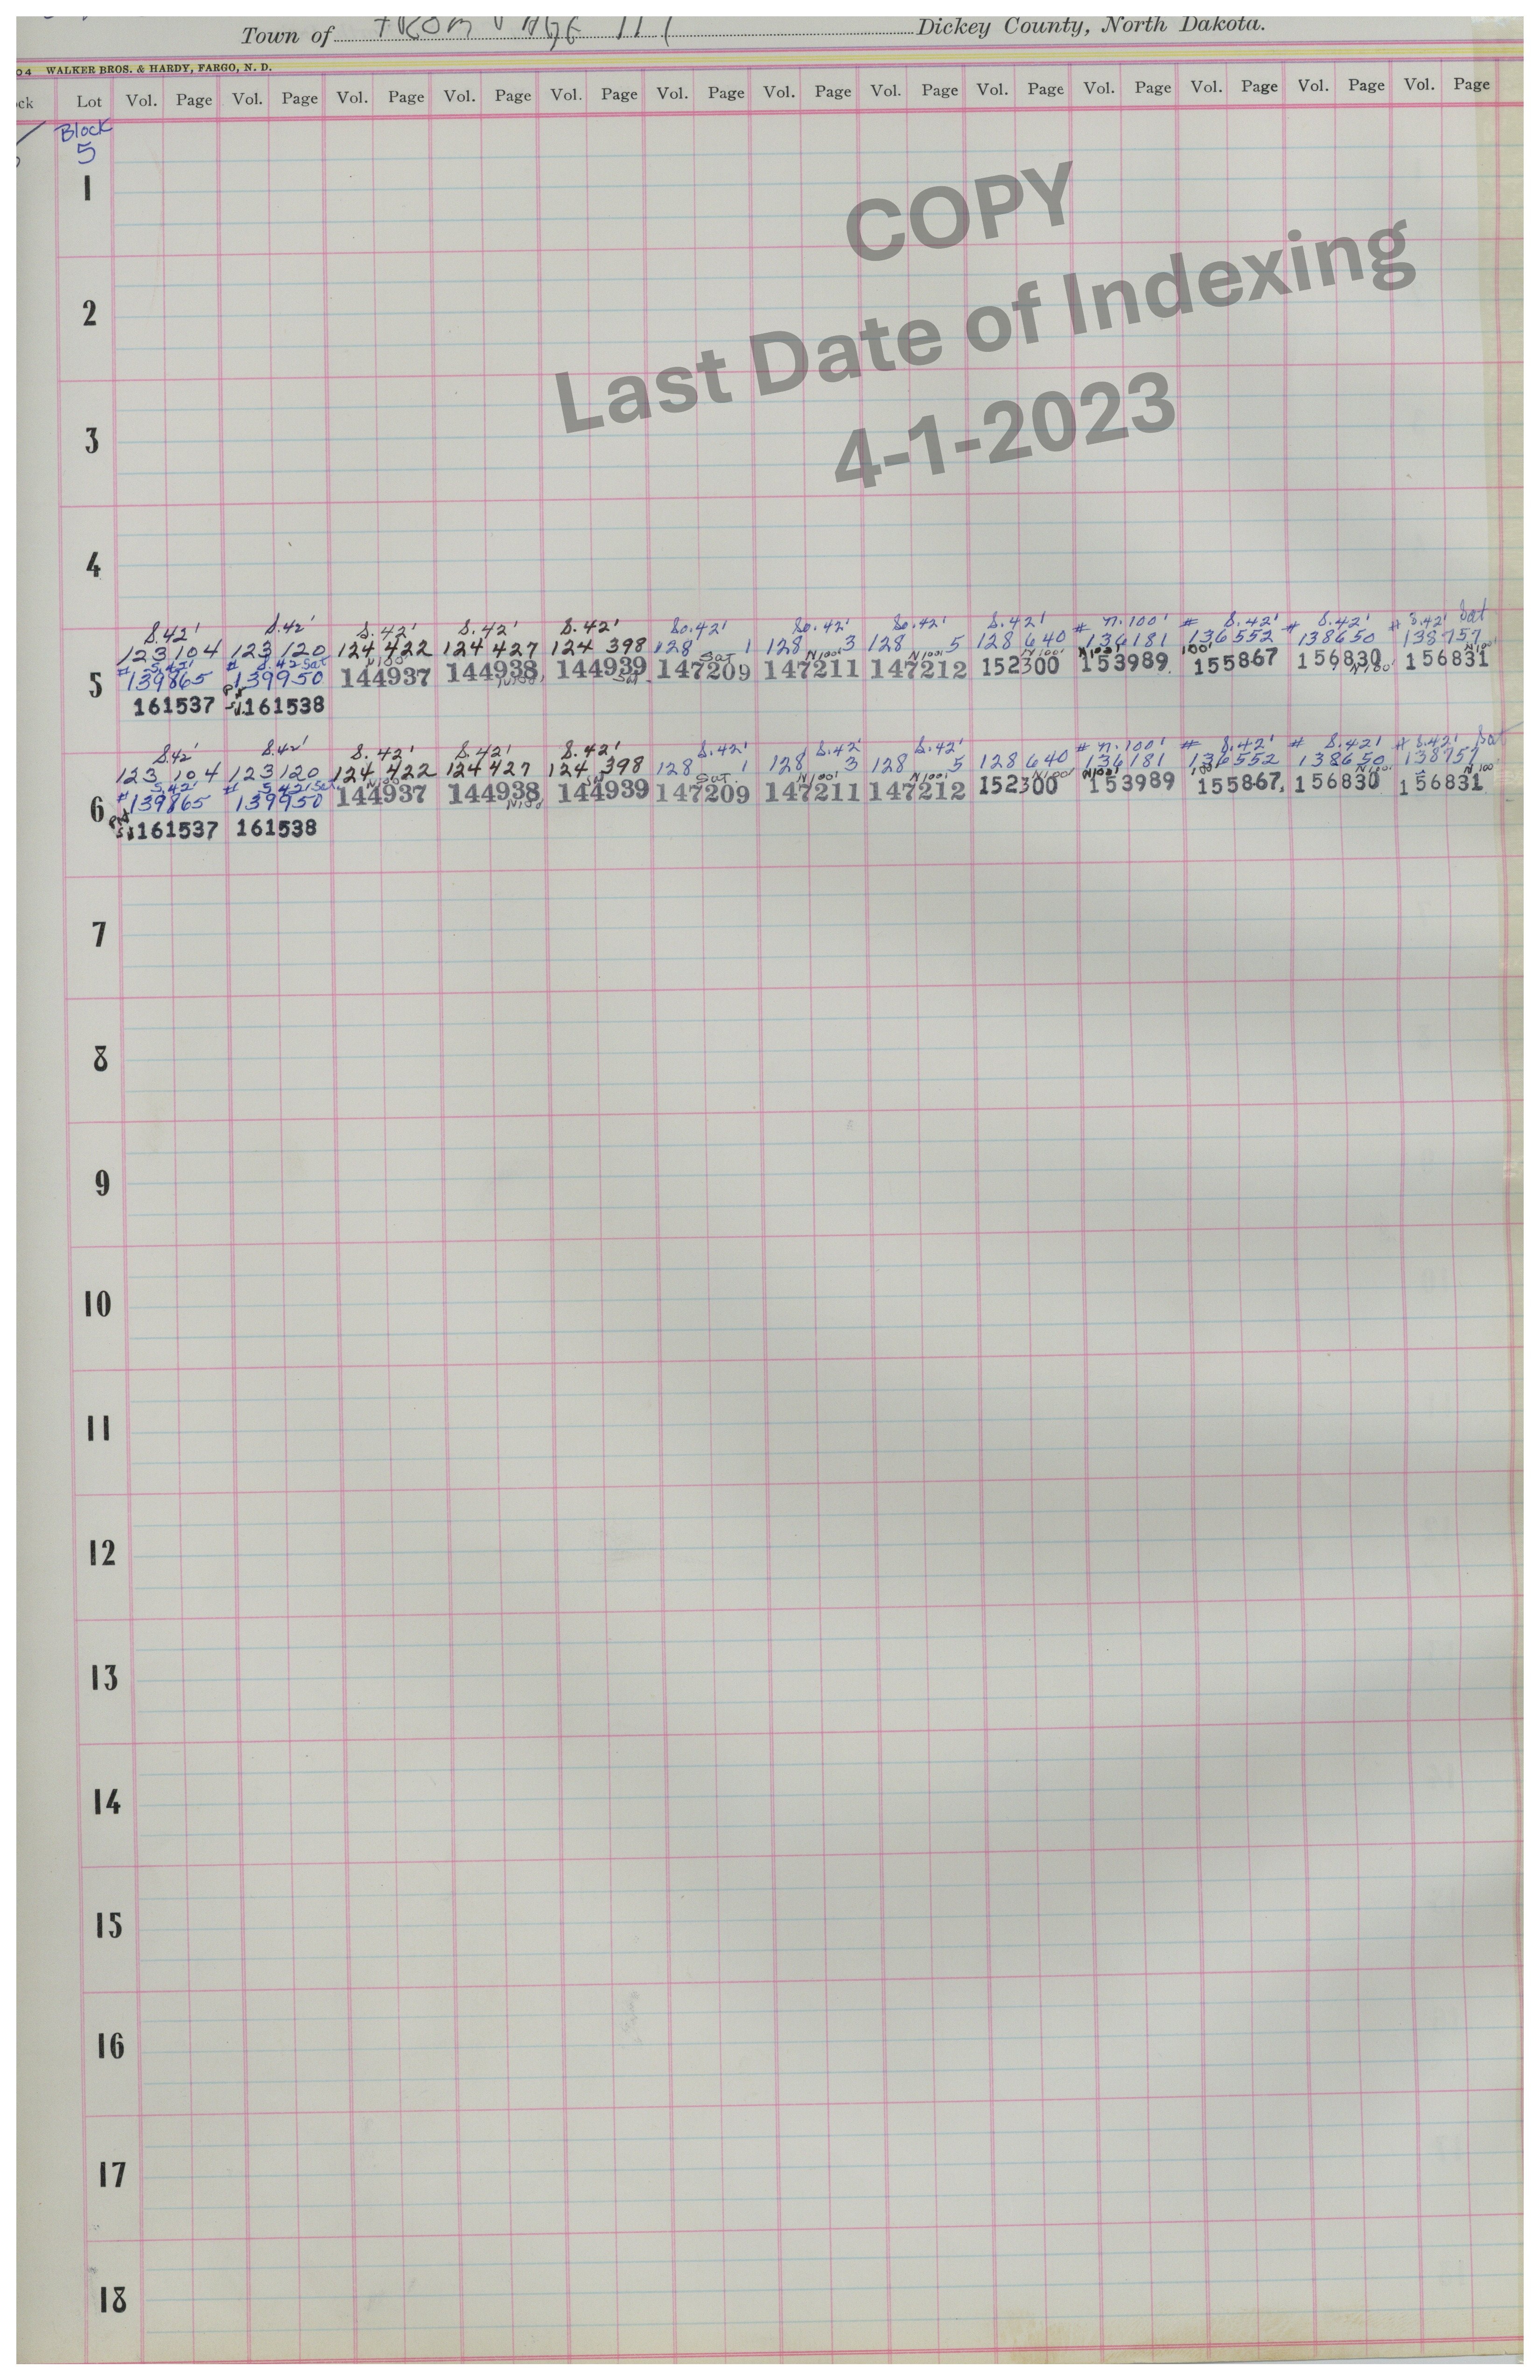 Town of FROM PAGE 117 Dickey County, North Dakota.
04 WALKER BROS. & HARDY, FARGO, N. D.
ck Lot Vol. Page Vol. Page Vol. Page Vol. Page Vol. Page Vol. Page Vol. Page Vol. Page Vol. Page Vol. Page Vol. Page Vol. Page Vol. Page
Block
5
1
COPY
2
Last Date of Indexing
3
4-1-2023
4
S.42' S.42' S.42' S.42' S.42' So.42' So.42' So.42' S.42' # N.100' # S.42' # S.42' # S.42' Sat
123 104 123 120 124 422 124 427 124 398 128 1 128 3 128 5 128 640 136181 136552 138650 138757
S.42' # S.42' Sat N 100 Sat N100' N100' N100' N100' 100' N100'
5 139865 139950 144937 144938 144939 147209 147211 147212 152300 153989 155867 156830 156831
N100' Sat. N100'
161537 161538
S.42' S.42' S.42' S.42' S.42' S.42' S.42' S.42' # N.100' # S.42' # S.42' # S.42' Sat
123 104 123 120 124 422 124 427 124 398 128 1 128 3 128 5 128 640 136181 136552 138650 138757
# S.42' # S.42' Sat N100 Sat Sat. N100' N100' N100' N100' 100' N100' N100'
6 139865 139950 144937 144938 144939 147209 147211 147212 152300 153989 155867 156830 156831
N100
161537 161538
7
8
9
10
11
12
13
14
15
16
17
18